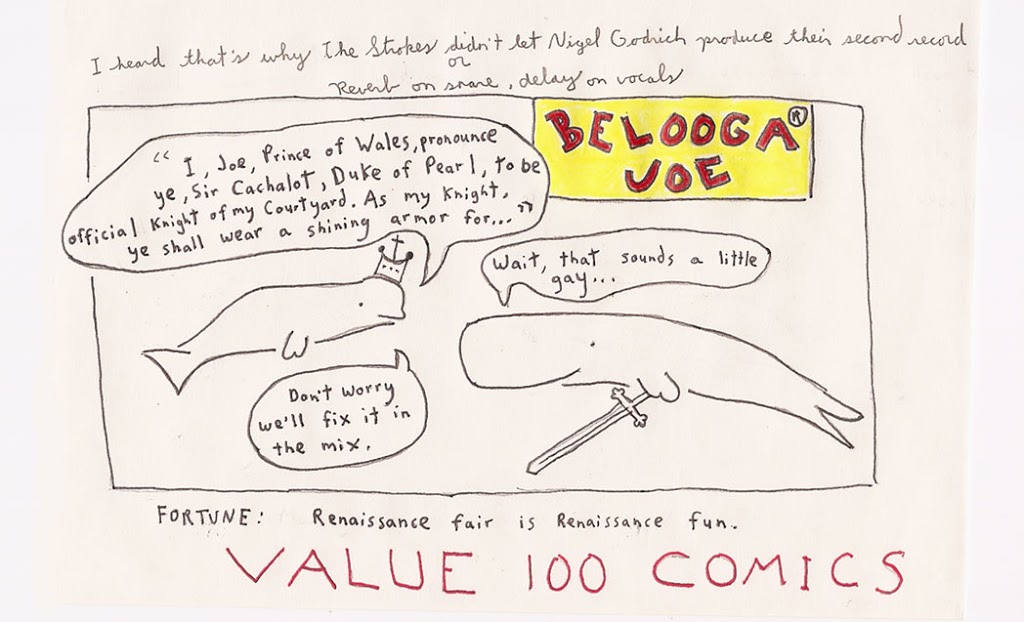 I heard that's why The Strokes didn't let Nigel Godrich produce their second record
or
Reverb on snare, delay on vocals
BELOOGA ®
JOE
“ I, Joe, Prince of Wales, pronounce
ye, Sir Cachalot, Duke of Pearl, to be
official Knight of my Courtyard. As my Knight,
ye shall wear a shining armor for... ”
Wait, that sounds a little
gay...
Don't worry
we'll fix it in
the mix.
FORTUNE: Renaissance fair is Renaissance fun.
VALUE 100 COMICS